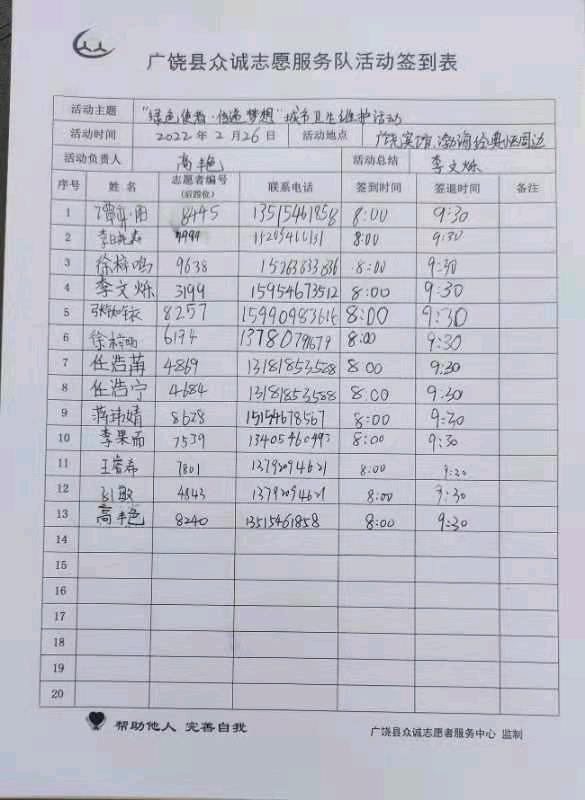 广饶县众诚志愿服务队活动签到表
活动主题 "绿色使者·传递梦想"城市卫生维护活动
活动时间 2022年2月26日 活动地点 广饶宾馆、渤海经典恒周边
活动负责人 高艳 活动总结 李文烁
序号 姓名 志愿者编号(后四位) 联系电话 签到时间 签退时间 备注
1 8445 13515461858 8:00 9:30
2 8:00 9:30
3 徐梓鸣 9638 8:00 9:30
4 李文烁 3199 15954673512 8:00 9:30
5 8257 8:00 9:30
6 8:00 9:30
7 任浩菁 4869 13181853588 8:00 9:30
8 任浩宁 4684 13181853588 8:00 9:30
9 蒋玮婧 8628 15154678567 8:00 9:30
10 李果而 7539 8:00 9:30
11 王睿希 7801 13792094621 8:00 9:30
12 刘敏 4843 13792094621 8:00 9:30
13 高艳 8240 13515461858 8:00 9:30
14
15
16
17
18
19
20
帮助他人 完善自我
广饶县众诚志愿者服务中心 监制